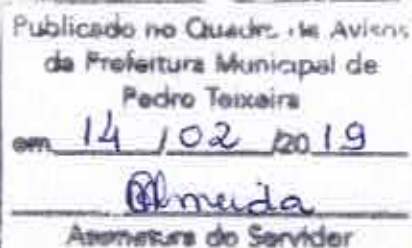 Publicado no Quadro de Avisos
da Prefeitura Municipal de
Pedro Teixeira
em 14 / 02 /20 19
Almeida
Assinatura do Servidor